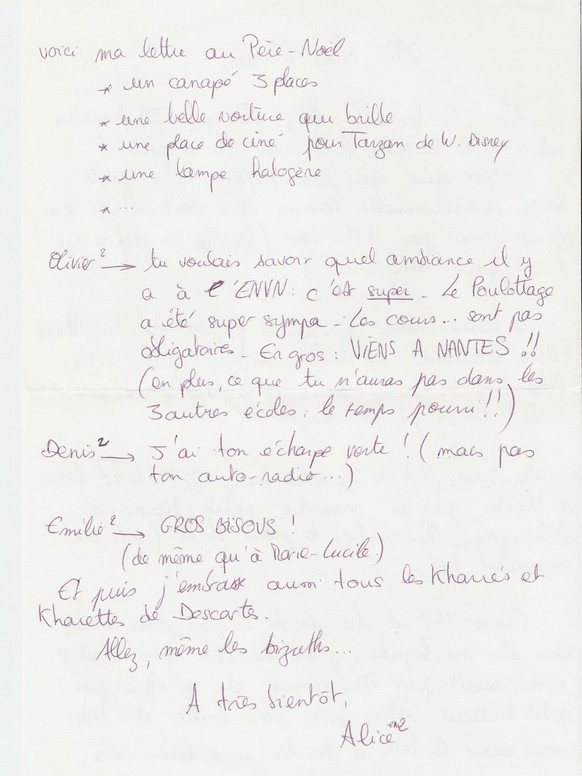 voici ma lettre au Père-Noël
* un canapé 3 places
* une belle voiture qui brille
* une place de ciné pour Tarzan de W. Disney
* une lampe halogène
* ...
Olivier² → tu voulais savoir quel ambiance il y
a à l'ENVN : c'est super - Le Poulottage
a été super sympa - Les cours... sont pas
obligatoires - En gros : VIENS A NANTES !!
(en plus, ce que tu n'auras pas dans les
3 autres écoles : le temps pourri !!)
Denis² → J'ai ton écharpe verte ! (mais pas
ton auto-radio...)
Emilie² → GROS BISOUS !
(de même qu'à Marie-Lucile)
Et puis j'embrasse aussi tous les Kharrés et
Kharettes de Descartes.
Allez, même les bizuths...
A très bientôt,
Alice